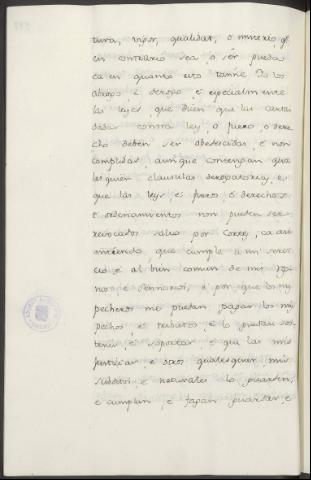 tura, vigor, qualidat, o misterio, qe
en contrario sea, o ser pueda
ca en quanto esto tanne Yo los
abrogo e derogo, e especialmente
las leyes que dicen que las cartas
dadas contra ley, o fuero, o dere
cho deben ser obedecidas, e non
complidas, aunque contengan qua
lesquier clausulas derogatorias, e
que las leys e fueros e derechos
e ordenamientos non pueden ser
revocados salvo por Cortes, ca asi
entiendo, que cumple a mi servi
cio e al bien comun de mis rey
nos e Sennorios, e por que los mis
pecheros me puedan pagar los mis
pechos, e tributos, e lo puedan sos
tener e soportar e que las mis
Justicias, e otros qualesquier mis
subditos, e naturales lo guarden,
e cumplan, e fagan guardar, e